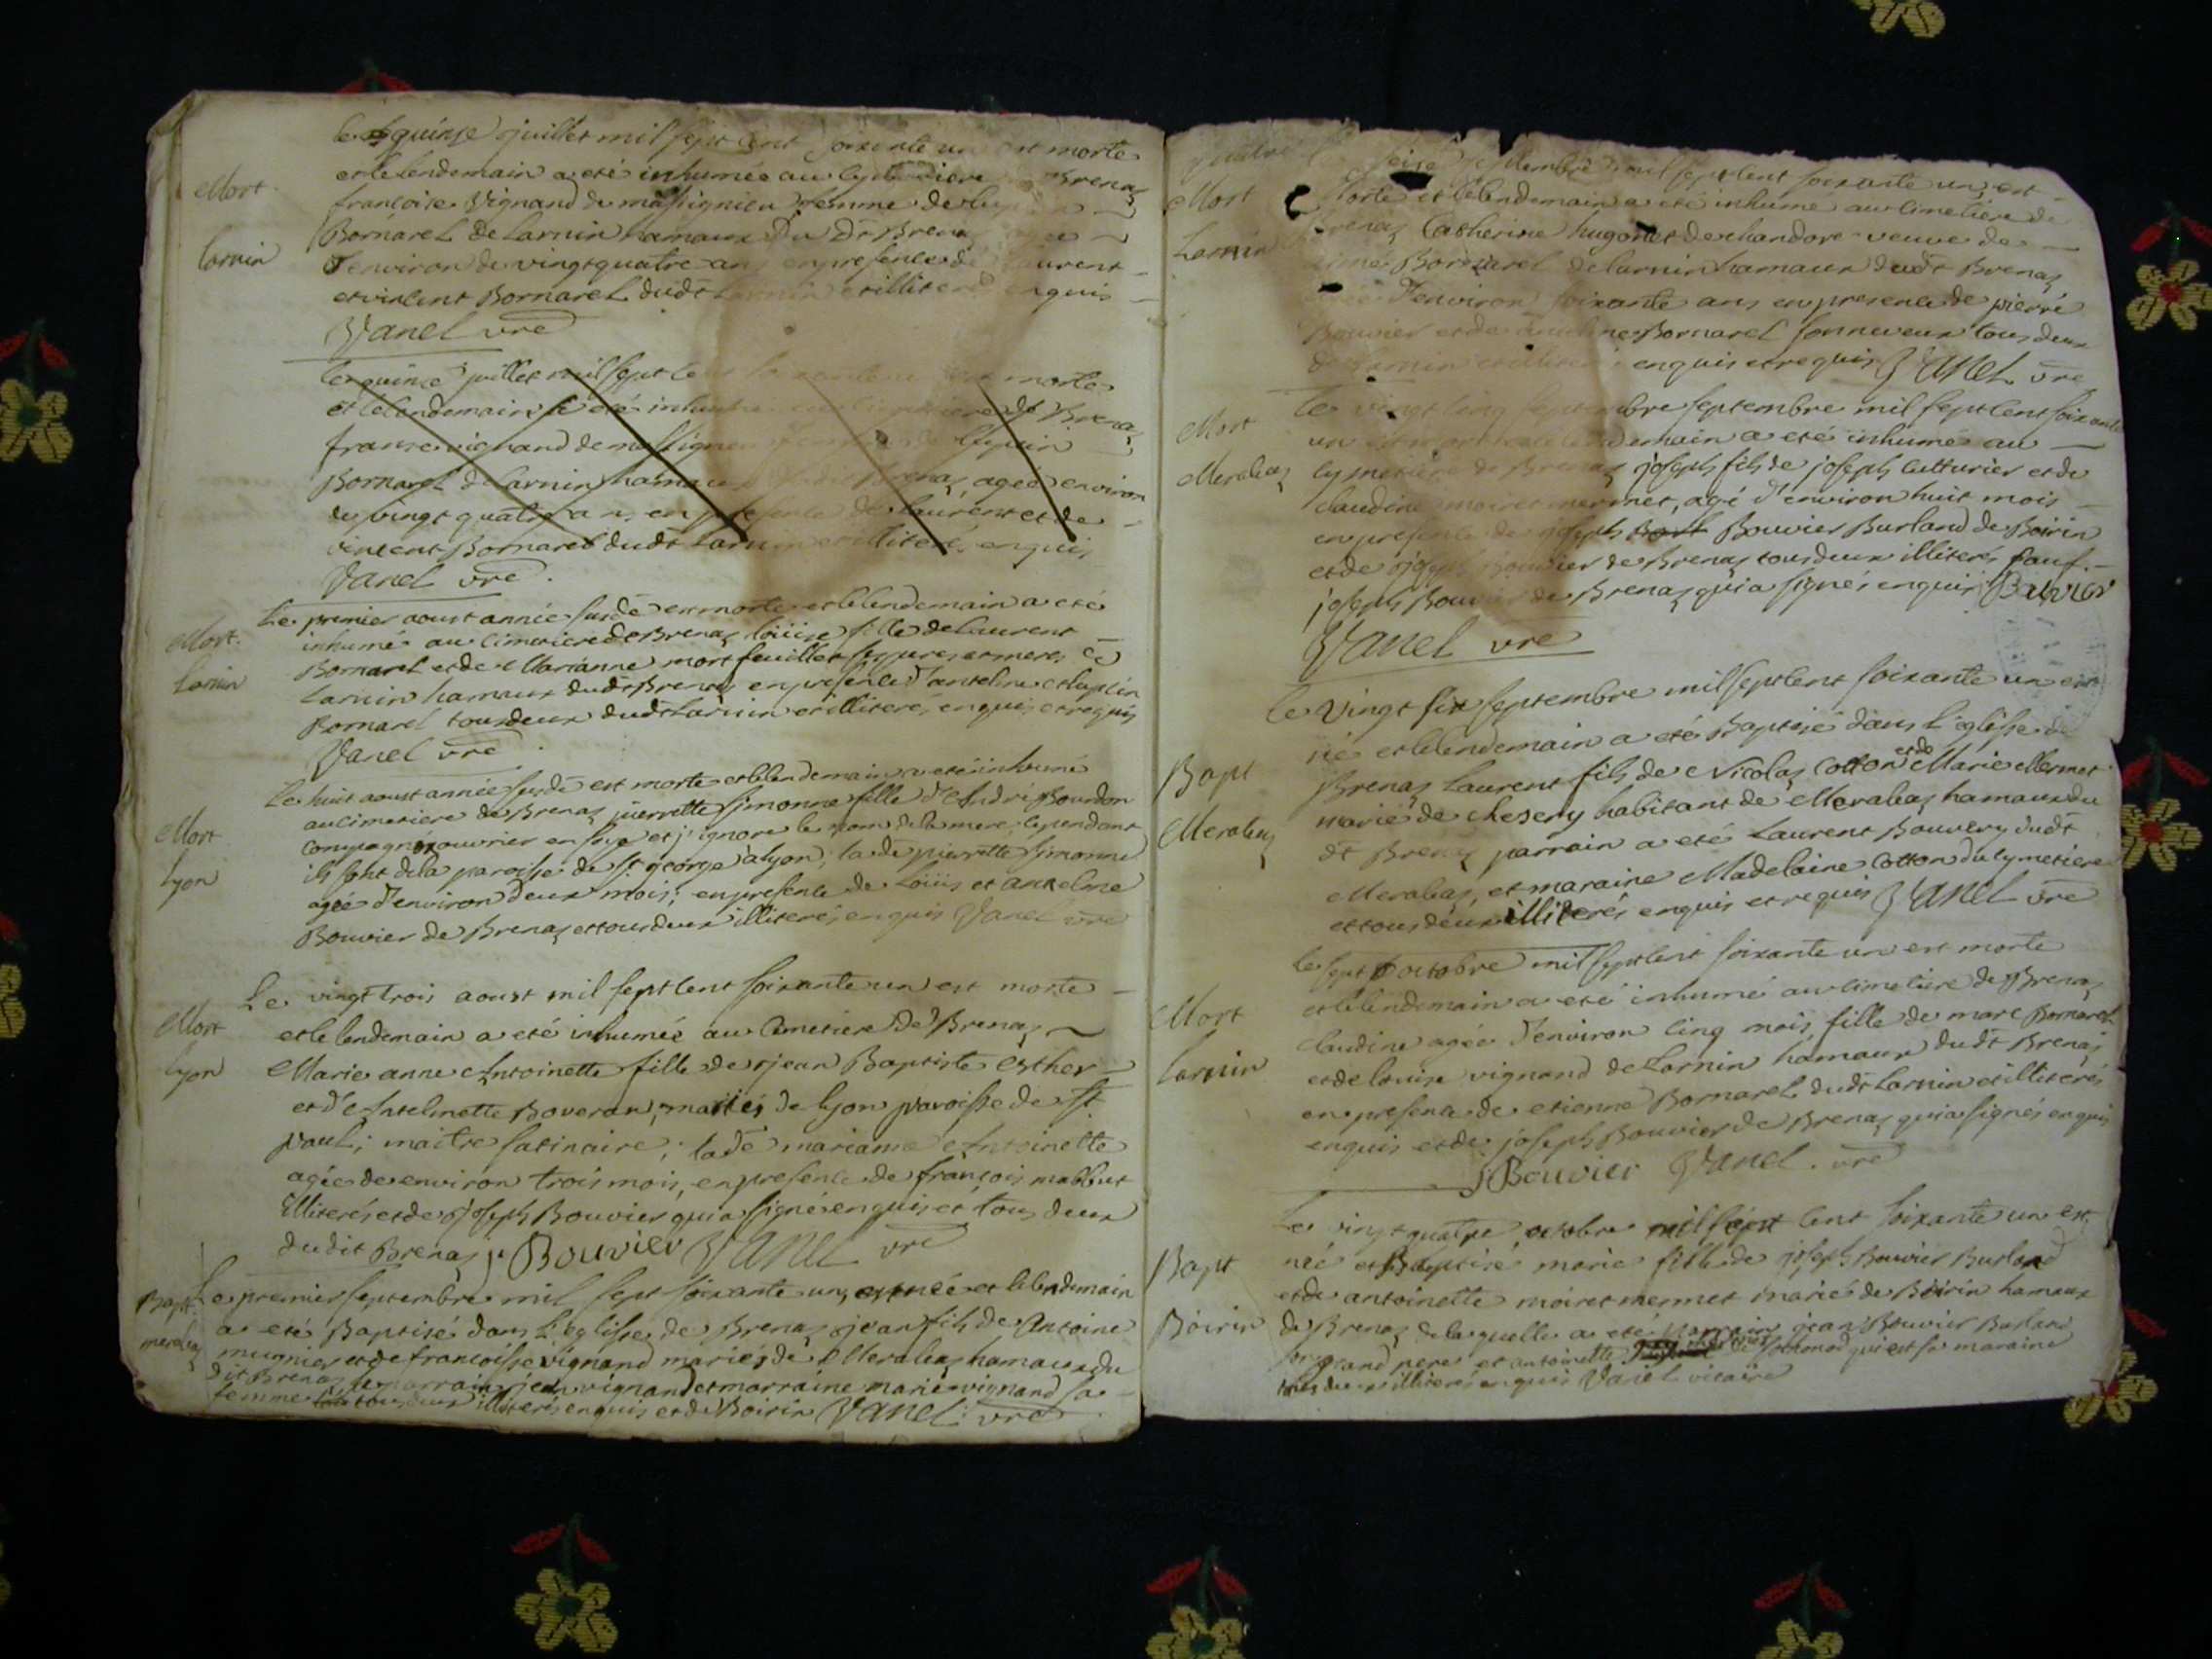 le quinze juillet mil sept cent soixante un est morte
Mort
et le lendemain a eté inhumée au Brenaz
francoise Vignand de massignieu femme de
Larnin
Bornarel de Larnin hamaux Du Dt Brenaz
d'environ de vingt quatre ans en presence de Laurent
et vincent Bornarel dudt Larnin et illiteré enquis
Vanel vre
le quinze juillet mil sept morte
et le lendemain a eté inhumée de Brenaz
france vignand de massignieu lupicin
Bornarel de Larnin hamaux Brenaz, ageé environ
de vingt quatre an, en presence de laurent et de
vincent Bornarel dudt Larnin et illiteré, enquis
Vanel vre.
Le premier aoust année susde est morte et le lendemain a eté
Mort.
inhumé au cimetiere de Brenaz loüise fille de laurent
Larnin
Bornarel et de Marianne mortfeuillet ses peres et meres de
Larnin hamaux dudt Brenaz en presence d'antelme et lupicin
Bornarel tous deux dudt Larnin et illiteré, enquis et requis
Vanel vre
Le huit aoust année susde est morte et le lendemain a eté inhumé
Mort
au cimetiere de Brenaz pierrette simonne fille d'André Bourdon
compagnon ouvrier en soye et j'ignore le nom de la mere, cependant
Lyon
ils sont de la paroisse de st george a lyon; lade pierrette simonne
ageé d'environ deux mois; en presence de Loüis et antelme
Bouvier de Brenaz et tous deux illiteré, enquis Vanel vre
Le vingt trois aoust mil sept cent soixante un est morte
Mort
et le lendemain a eté inhumée au Cimetiere de Brenaz
Lyon
Marie anne Antoinette fille de jean Baptiste Esther
et d'Antelmette Boveran, mariés de lyon paroisse de St
paul; maitre satinaire; lade marianne Antoinette
ageé de environ trois mois, en presence de francois mabbut
Illiterés et de joseph Bouvier qui a signés enquis et tous deux
dudit Brenaz J. Bouvier Vanel vre
Bapt.
Le premier septembre mil sept soixante un, est née et le lendemain
meraleaz
a eté Baptisé dans L'eglisse de Brenaz jean fils de Antoine
mugnier et de francoisse vignand mariés de Meraleaz hamaux du
dit Brenaz le parrain jean vignand et marraine marie vignand sa
femme tous deux illiterés enquis et de Boirin Vanel vre
seise septembre mil sept cent soixante un, est
Mort
Morte et le lendemain a eté inhumé au cimetiere de
Larnin
Brenaz Catherine hugonet de chandore veuve de
Bornarel de Larnin hamaux dudt Brenaz
d'environ soixante ans en presence de pierre
Bouvier et de Bornarel son neveux tous deux
de Larnin et illiteré enquis et requis Vanel vre
Le vingt cinq septembre septembre mil sept cent soixante
Mort
un est mort et le lendemain a eté inhumé au
Meraleaz
cymetiere de Brenaz joseph fils de joseph cutturier et de
claudine moiret mermet, agé d'environ huit mois
en presence de joseph Bouvier Burland de Boirin
et de joseph Bouvier de Brenaz tous deux illiterés sauf
joseph Bouvier de Brenaz qui a signés enquis Bouvier
Vanel vre
Le vingt six septembre mil sept cent soixante un est
né et le lendemain a eté Baptisé dans l'eglise de
Bapt
Brenaz Laurent fils de Nicolas Cotton et de Marie Mermet
marié de chesery habitant de Meraleaz hamaux du
Meraleaz
dt Brenaz parrain a eté Laurent Bouvery dudt
Meraleaz, et maraine Madelaine Cotton du cymetiere
et tous deux illiterés enquis et requis Vanel vre
le sept octobre mil sept cent soixante un est morte
Mort
et le lendemain a eté inhumé au cimetiere de Brenaz
claudine ageé d'environ cinq mois fille de marc Bornarel
Larnin
et de louise vignand de Larnin hamaux dudt Brenaz
en presence de etienne Bornarel dudt Larnin et illiterés
enquis et de joseph Bouvier de Brenaz qui a signés enquis
J Bouvier Vanel. vre
Le vingt quatre octobre mil sept cent soixante un est
Bapt
neé et Baptisé marie fille de joseph Bouvier Burland
et de antoinette moiret mermet mariés de Boirin hamaux
Boirin
de Brenaz de laquelle a eté parrain jean Bouvier Burland
son grand pere et antoinette qui est sa maraine
tous deux illiterés enquis Vanel vicaire